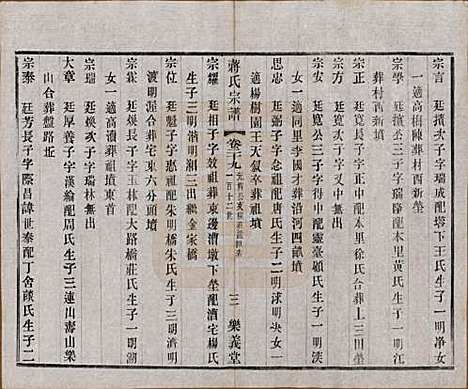 宗言　廷搢次子字瑞成配塔下王氏生子一明淨女
一適高樹陳葬村西新塋
宗學　廷寬次子字瑞隆配本里黃氏生子一明江
葬村西新墳
宗正　廷寬長子字正中配本里徐氏合葬上三田塋
宗方　廷寬次子字方中無出
宗安　廷寬公三子字得中配靈臺顧氏生子一明渶
女一適同里李國才葬沿河四畝墳
思忠　廷弼三子字念祖配唐氏生子二明浗明洟女一
適楊樹園王天氣衣葬祖墳
蔣氏宗譜　卷三十九　一百十三世　三　樂義堂
宗耀　廷相子字效祖葬東邊漕墩下塋配漕宅楊氏
生子三明湖明洞出繼金家橋
宗位　廷魁子字惠祖配朱明橋朱氏生子三明濟明
渡明渥合葬宅東六分頭墳
宗霖　廷儀長子字玉林配大路橋莊氏生子一明湖
女一適高漕葬祖墳東首
宗瑞　廷煐次子字瑞林無出
大章　廷厚養子字漢綸配周氏生子三連山壽山樂
山合葬盤路北
宗泰　廷芳長子字際昌諱世泰配丁舍顔氏生子二